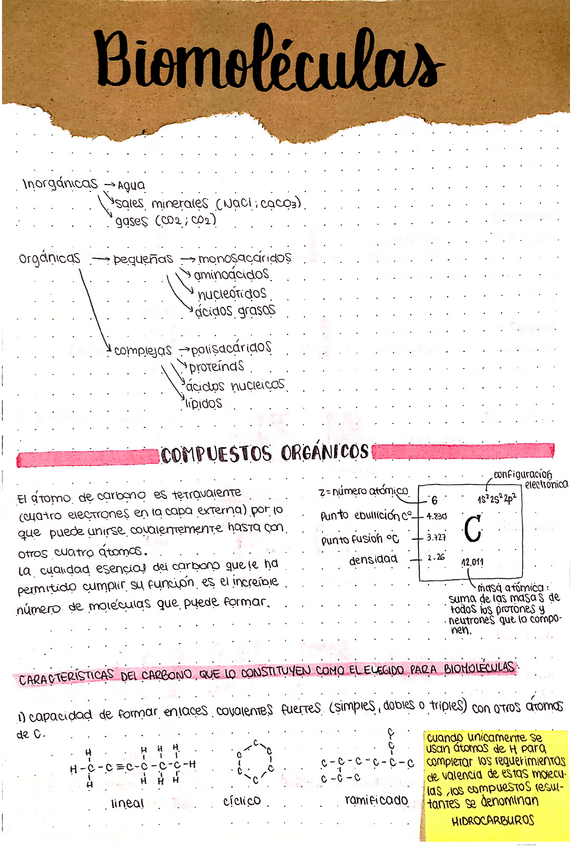 Biomoléculas
Inorgánicas → Agua
sales minerales (NaCl; CaCO3)
gases (CO2; CO2)
orgánicas → pequeñas → monosacáridos
aminoácidos
nucleótidos
ácidos grasos
complejas → polisacáridos
proteínas
ácidos nucleicos
lípidos
COMPUESTOS ORGÁNICOS
El átomo de carbono es tetravalente
(cuatro electrones en la capa externa) por lo
que puede unirse covalentemente hasta con
otros cuatro átomos.
la cualidad esencial del carbono que le ha
permitido cumplir su función es el increíble
número de moléculas que puede formar.
configuración
electrónica
z = número atómico
6
1s² 2s² 2p²
Punto ebullición C°
4.830
C
Punto fusión °C
3.727
densidad
2.26
12,011
masa atómica:
suma de las masas de
todos los protones y
neutrones que lo compo-
nen.
CARACTERÍSTICAS DEL CARBONO QUE LO CONSTITUYEN COMO EL ELEGIDO PARA BIOMOLÉCULAS
1) capacidad de formar enlaces covalentes fuertes (simples, dobles o triples) con otros átomos
de C.
H H H H
H-C-C≡C-C-C-C-H
H H H H
lineal
C C C C C C
cíclico
C
C
C-C-C-C-C-C
C-C-C
ramificado
cuando unicamente se
usan átomos de H para
completar los requerimientos
de valencia de estas molécu-
las, los compuestos resul-
tantes se denominan
HIDROCARBUROS